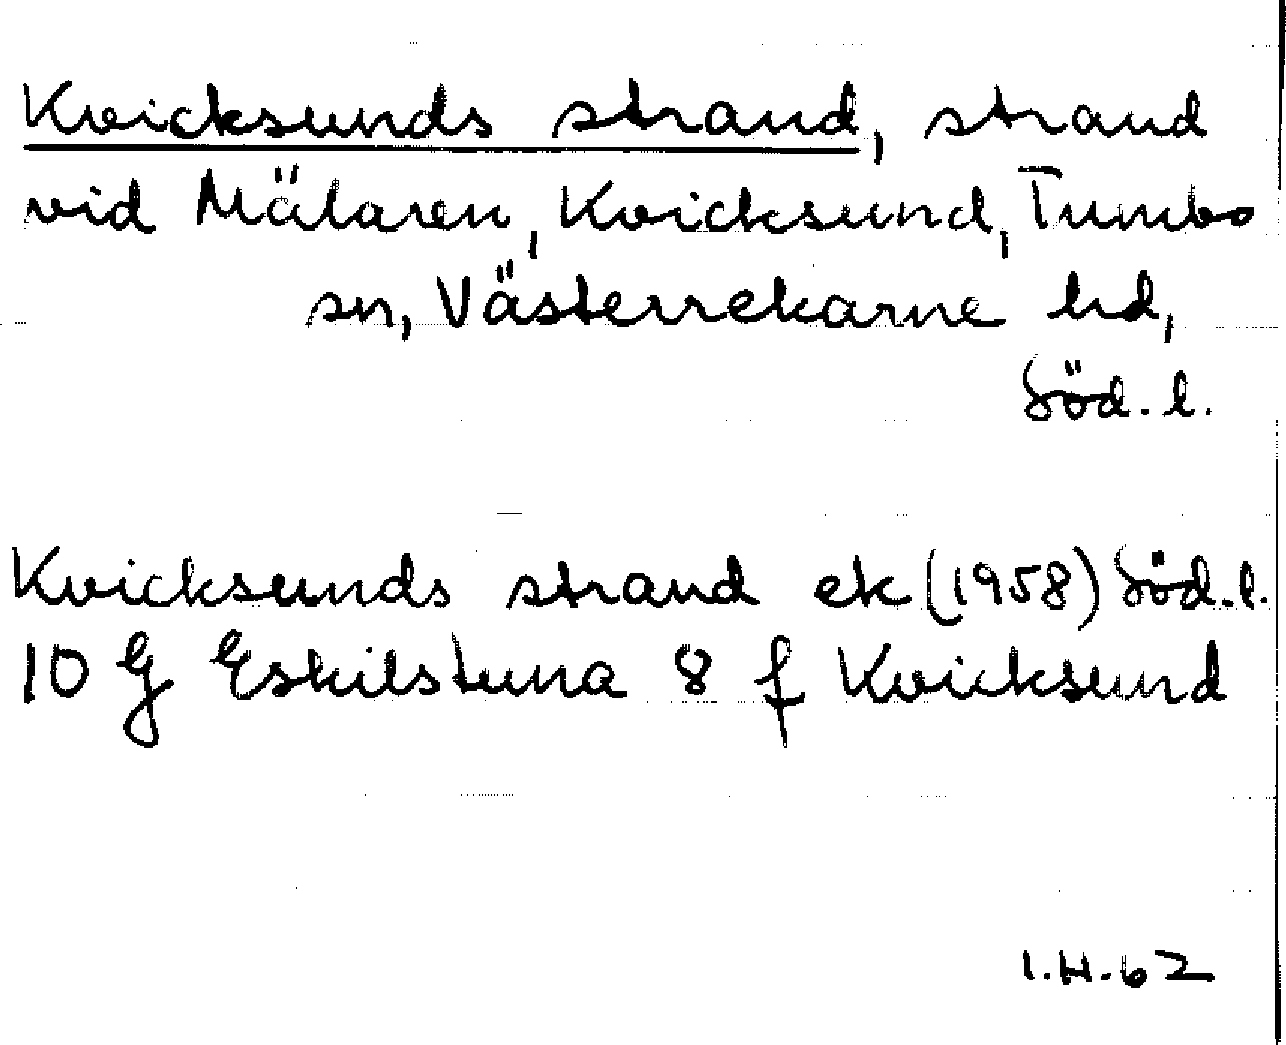 Kvicksunds strand, strand
vid Mälaren, Kvicksund, Tumbo
sn, Västerrekarne hd,
Söd. l.
Kvicksunds strand ek (1958) Söd. l.
10 G Eskilstuna 8 f Kvicksund
I.H. 62